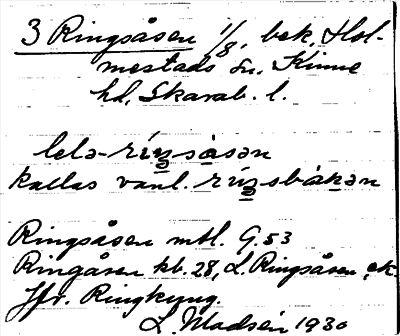 3 Ringsåsen 1/8, bek. Hol-
mestads sn. Kinne
hd, Skarab. l.
lelə-ríŋsåsən
kallas vanl. ríŋsbákən
Ringsåsen mtl. G.53
Ringåsen kb. 28, L. Ringsåsen, ek.
Jfr. Ringkyng.
L. Madsén 1930